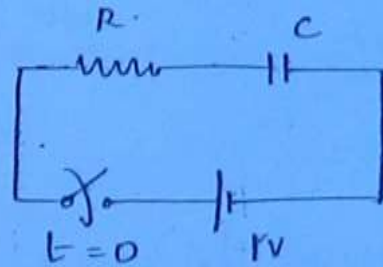 R.
C
t=0
1V